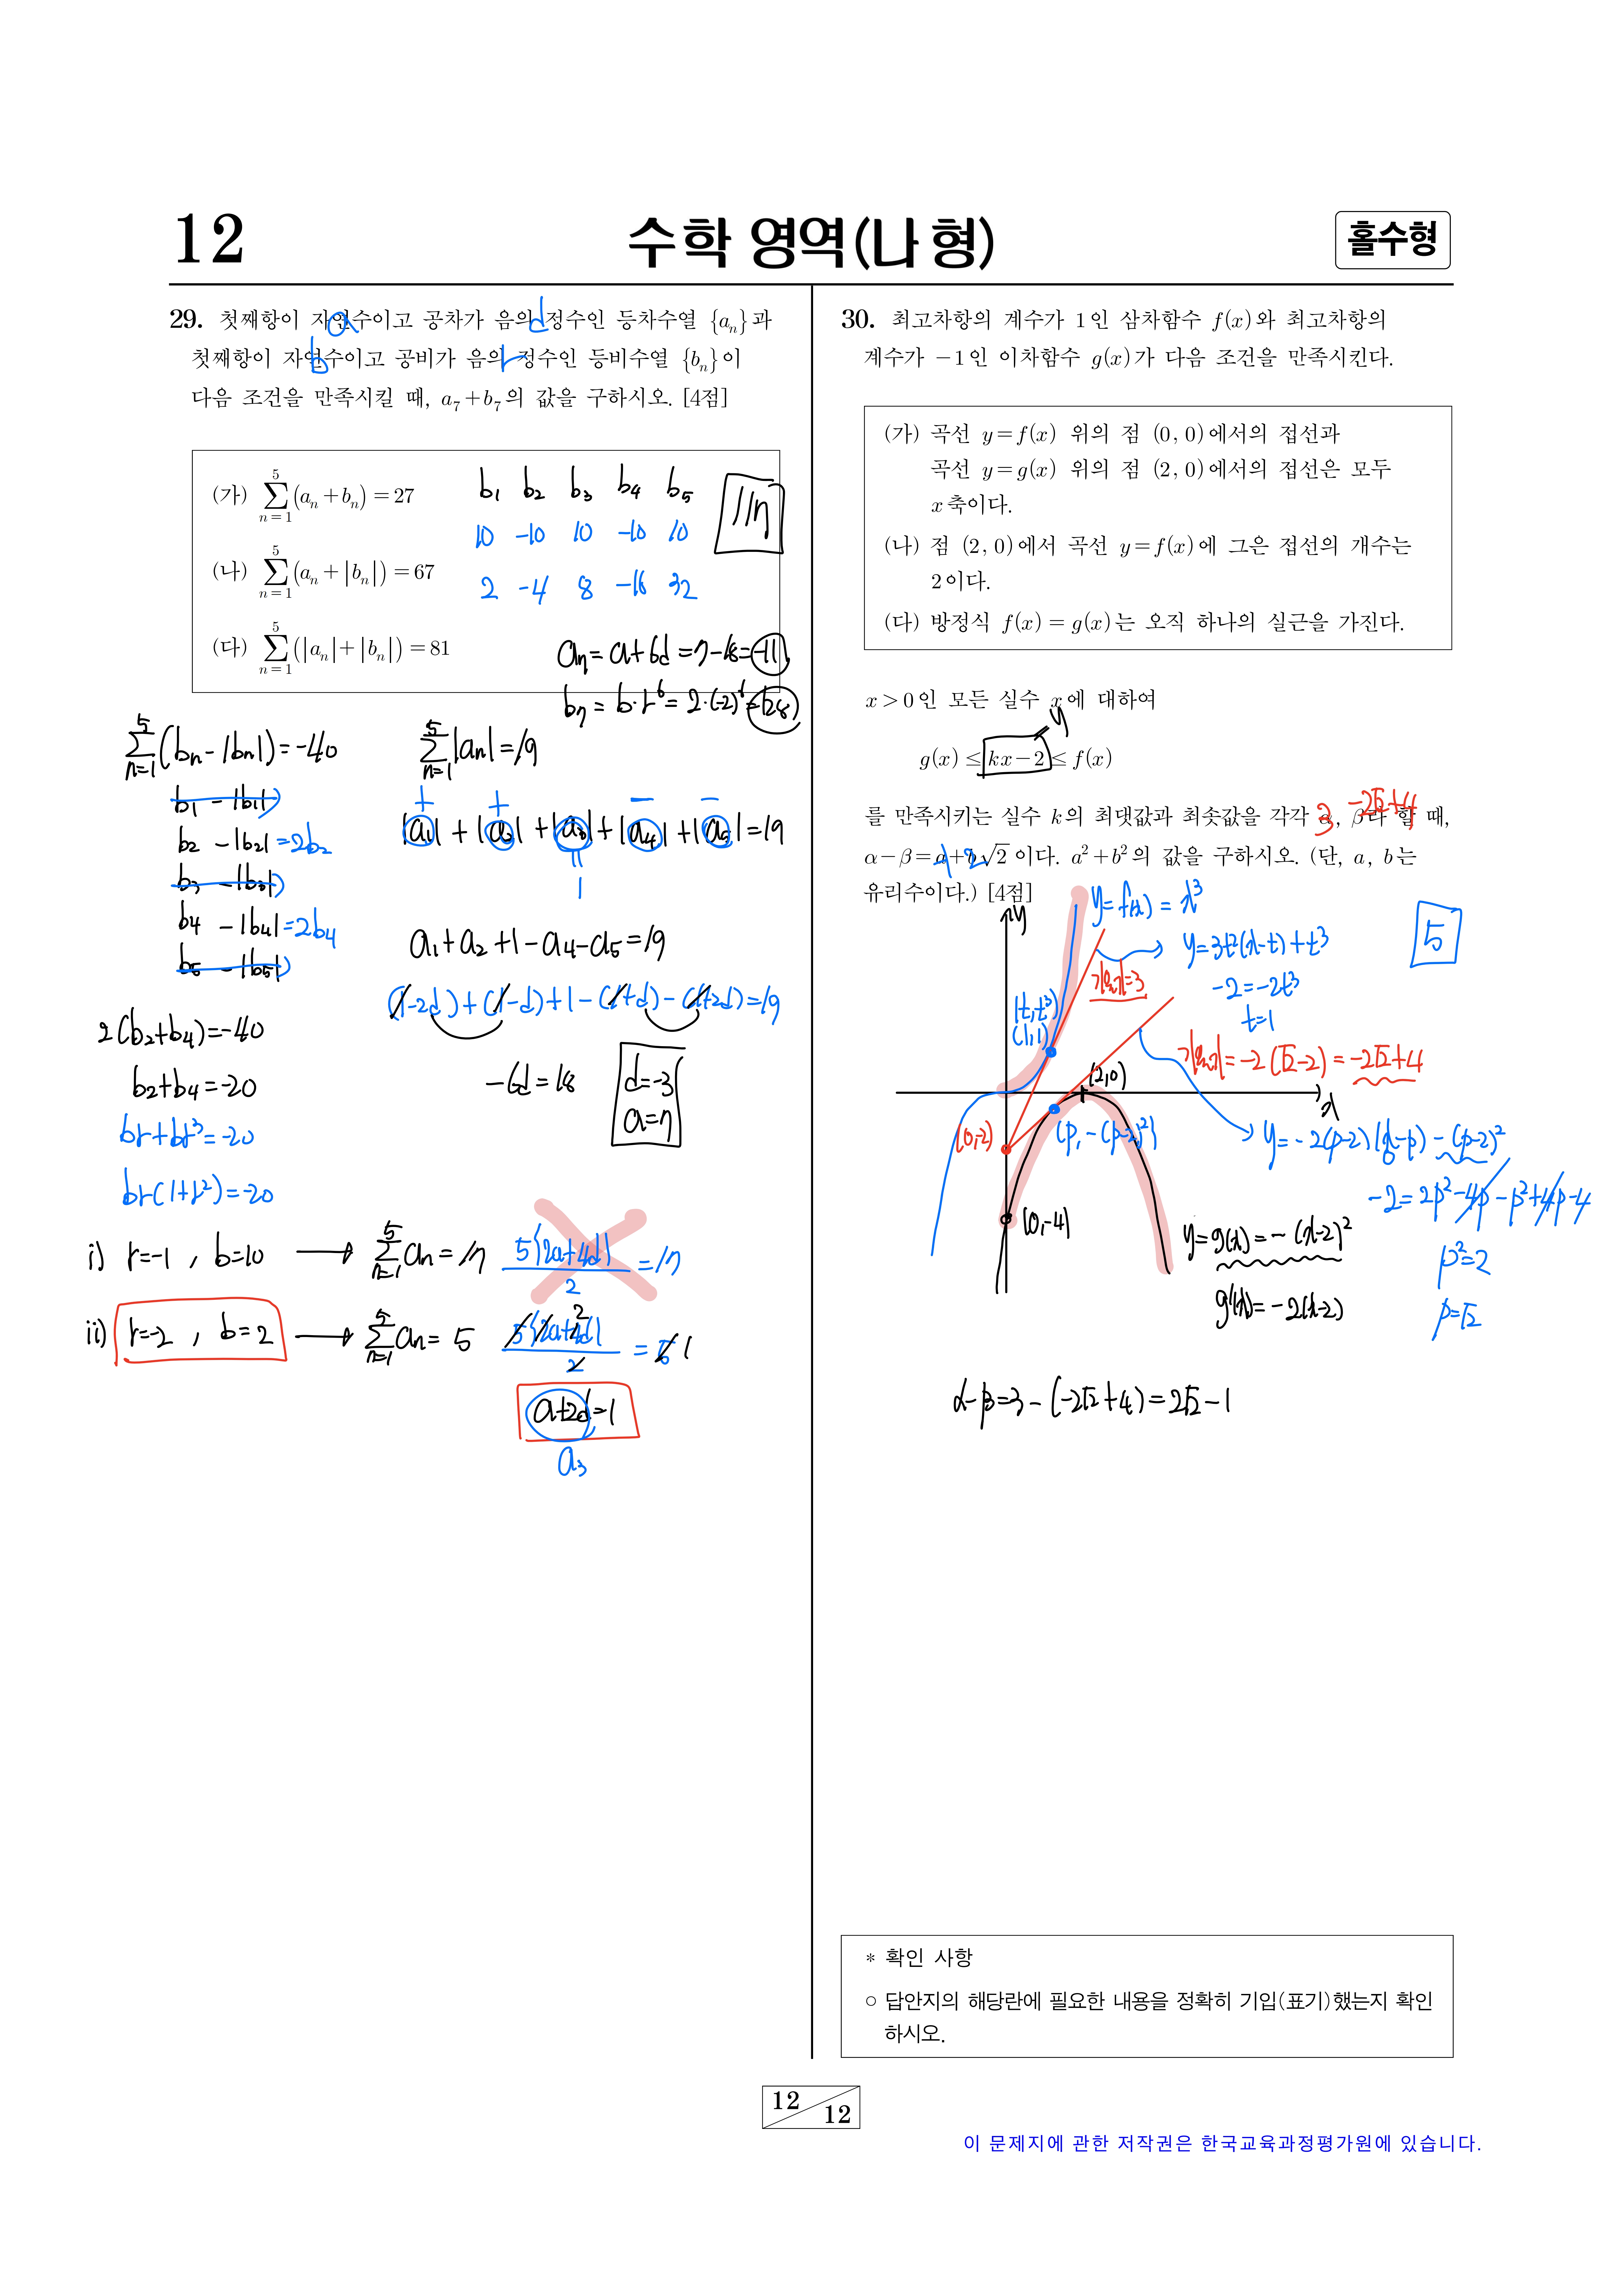 12
수학 영역(나형)
홀수형
29. 첫째항이 자연수이고 공차가 음의 정수인 등차수열 {aₙ}과
a
d
첫째항이 자연수이고 공비가 음의 정수인 등비수열 {bₙ}이
b
r
다음 조건을 만족시킬 때, a₇+b₇의 값을 구하시오. [4점]
(가) ∑_{n=1}^{5}(aₙ+bₙ)=27
(나) ∑_{n=1}^{5}(aₙ+|bₙ|)=67
(다) ∑_{n=1}^{5}(|aₙ|+|bₙ|)=81
b₁ b₂ b₃ b₄ b₅
10 -10 10 -10 10
2 -4 8 -16 32
117
a₇ = a+6d = 7-18 = -11
b₇ = b·r⁶ = 2·(-2)⁶ = 128
∑_{n=1}^{5}(bₙ-|bₙ|)=-40
b₁ - |b₁|
b₂ - |b₂| = 2b₂
b₃ - |b₃|
b₄ - |b₄| = 2b₄
b₅ - |b₅|
2(b₂+b₄)=-40
b₂+b₄=-20
br+br³=-20
br(1+r²)=-20
∑_{n=1}^{5}|aₙ|=19
+ + - -
|a₁|+|a₂|+|a₃|+|a₄|+|a₅|=19
||
1
a₁+a₂+1-a₄-a₅=19
(1-2d)+(1-d)+1-(1+d)-(1+2d)=19
-6d=18
d=-3
a=7
i) r=-1 , b=10 → ∑_{n=1}^{5}aₙ=17 5{2a+4d}/2=17
ii) r=-2 , b=2 → ∑_{n=1}^{5}aₙ=5 5{2a+4d}/2=5 2 1
a+2d=1
a₃
30. 최고차항의 계수가 1인 삼차함수 f(x)와 최고차항의
계수가 -1인 이차함수 g(x)가 다음 조건을 만족시킨다.
(가) 곡선 y=f(x) 위의 점 (0, 0)에서의 접선과
곡선 y=g(x) 위의 점 (2, 0)에서의 접선은 모두
x축이다.
(나) 점 (2, 0)에서 곡선 y=f(x)에 그은 접선의 개수는
2이다.
(다) 방정식 f(x)=g(x)는 오직 하나의 실근을 가진다.
x>0인 모든 실수 x에 대하여
y
g(x) ≤ kx-2 ≤ f(x)
를 만족시키는 실수 k의 최댓값과 최솟값을 각각 α, β라 할 때,
3 -2√2+4
α-β=a+b√2이다. a²+b²의 값을 구하시오. (단, a, b는
-1 2
유리수이다.) [4점]
5
y
y=f(x)=x³
y=3t²(x-t)+t³
-2=-2t³
t=1
기울기=3
(t,t³)
(1,1)
기울기=-2(√2-2)=-2√2+4
(2,0)
x
(0,-2)
(p,-(p-2)²)
y=-2(p-2)(x-p)-(p-2)²
-2=2p²-4p-p²+4p-4
p²=2
p=√2
(0,-4)
y=g(x)=-(x-2)²
g'(x)=-2(x-2)
α-β=3-(-2√2+4)=2√2-1
* 확인 사항
○ 답안지의 해당란에 필요한 내용을 정확히 기입(표기)했는지 확인
하시오.
12
12
이 문제지에 관한 저작권은 한국교육과정평가원에 있습니다.